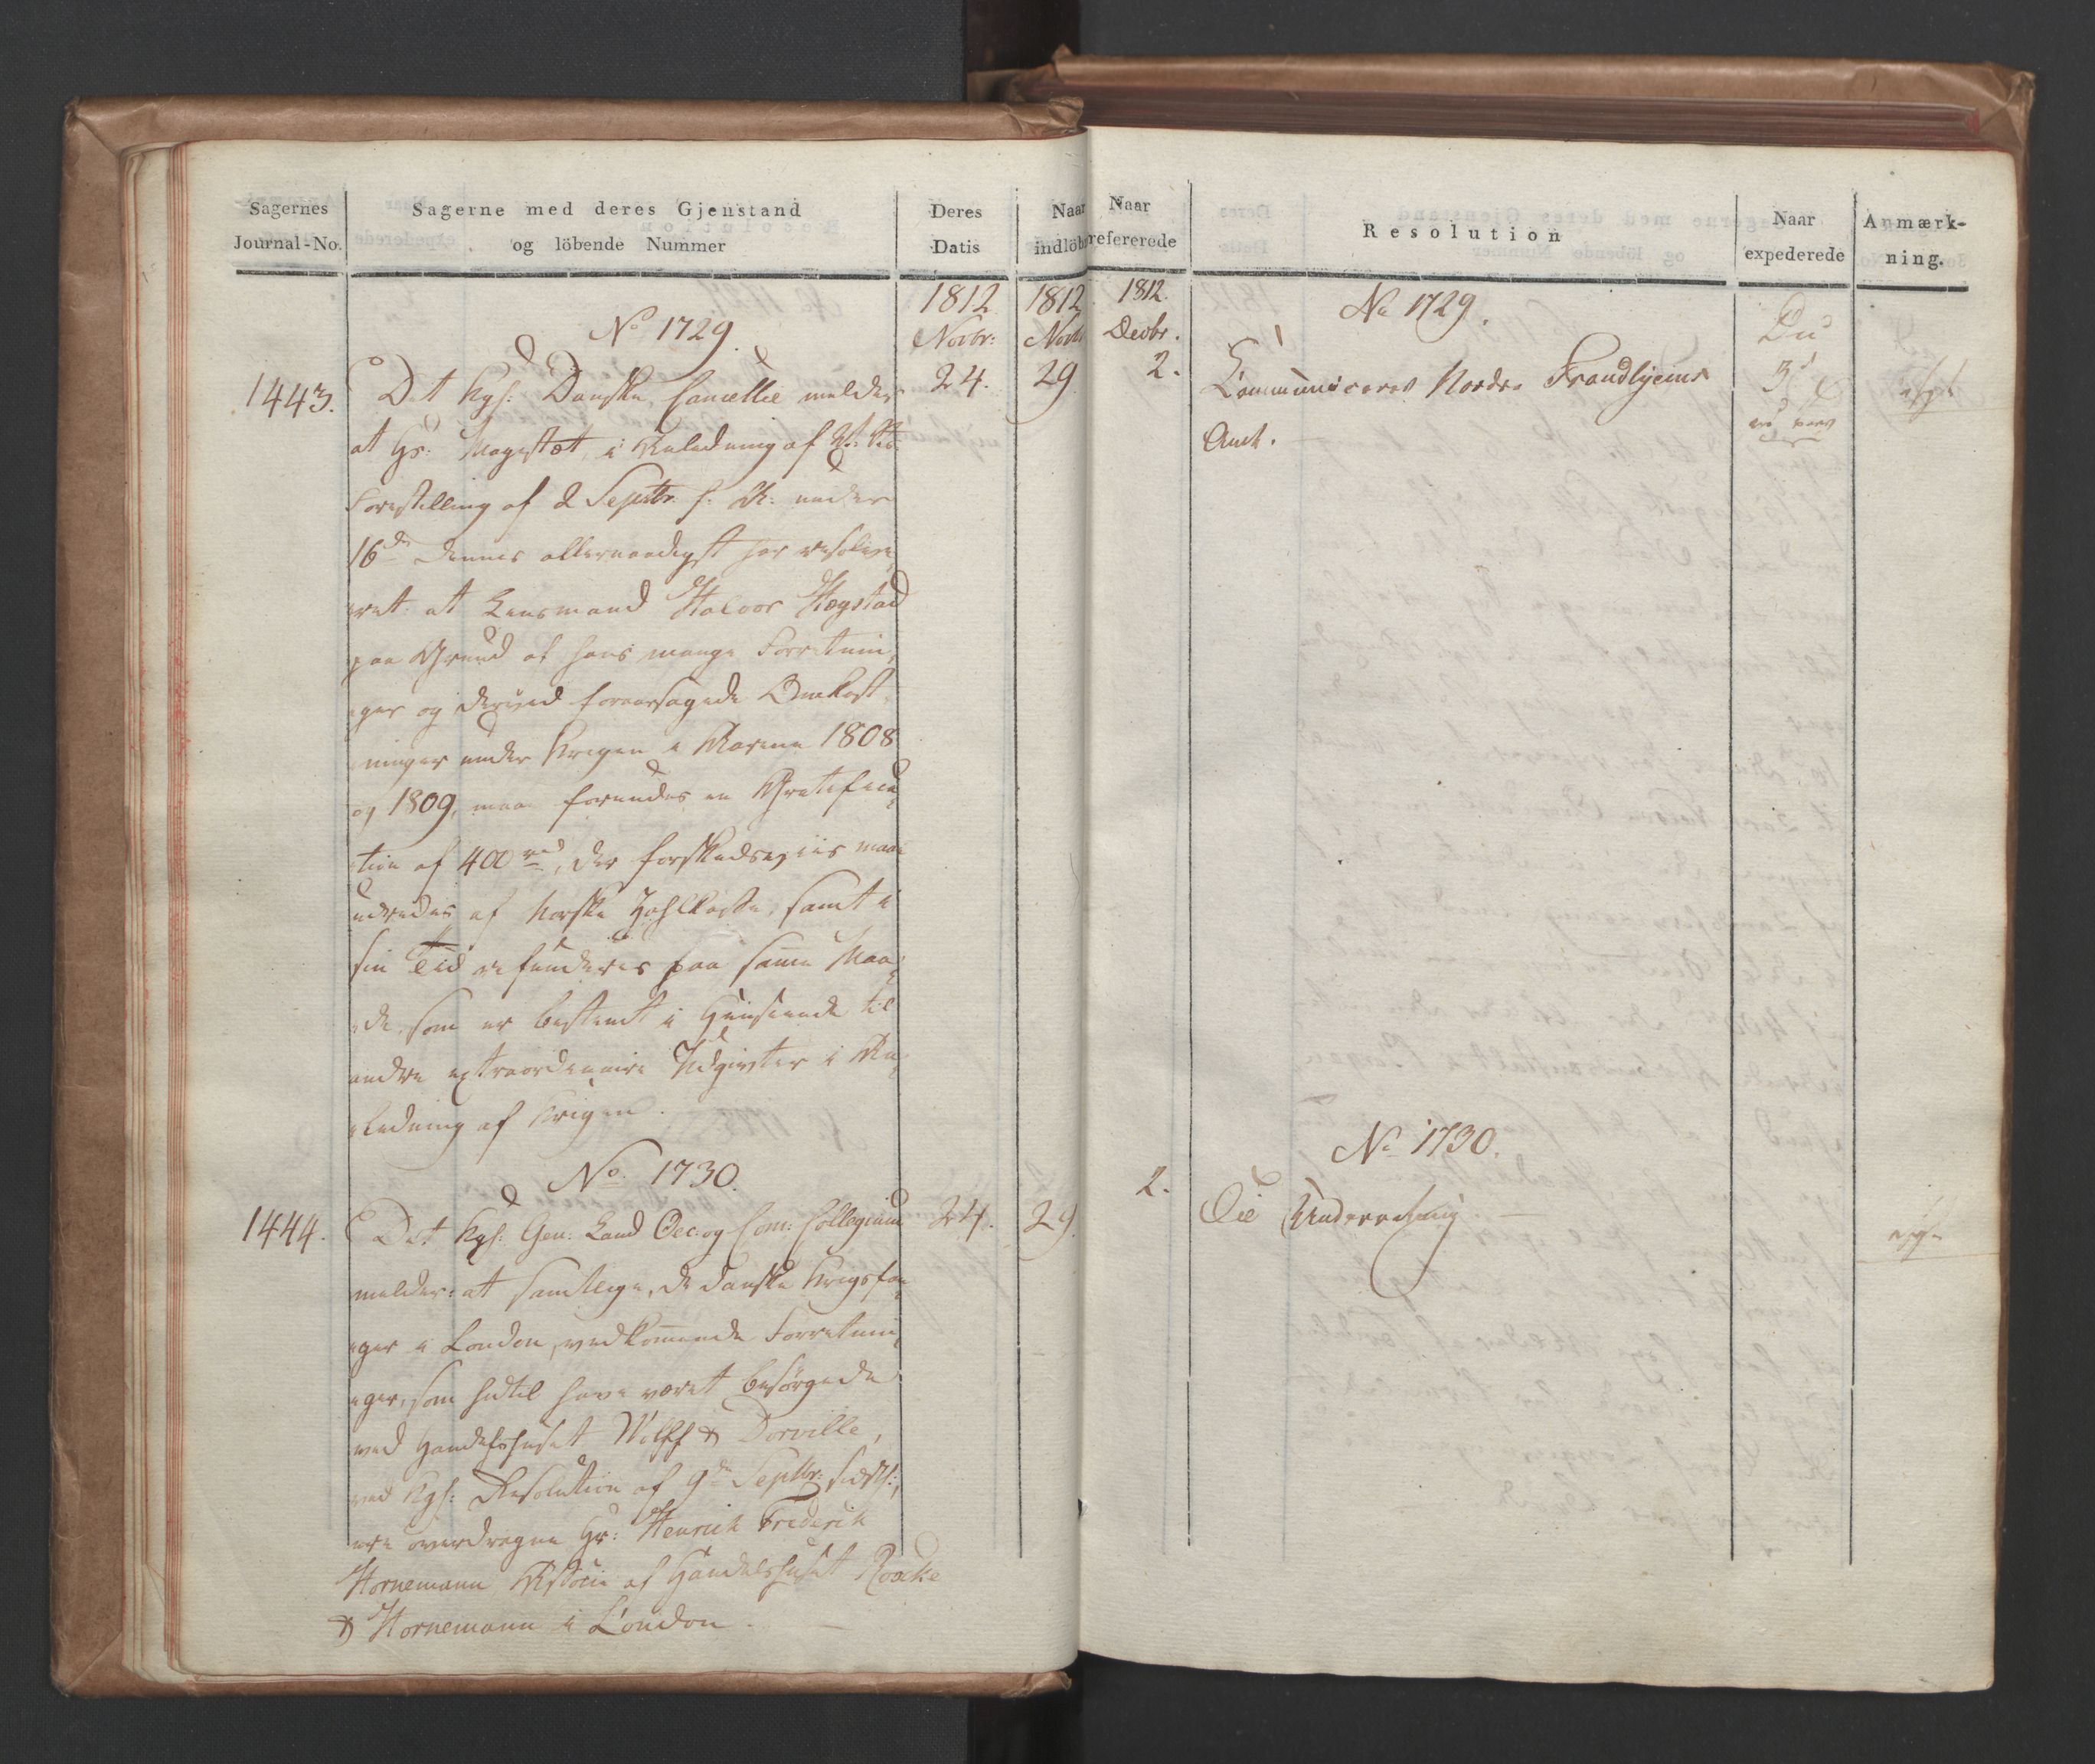 Sagernes
Journal-No.
Sagerne med deres Gjenstand
og löbende Nummer
Deres
Datis
Naar
indlöb
1812
Novbr:
1812
Novbr
No 1729.
1443.
Det Kgl: Danske Cancellie melder
24.
29
at Hs: Majestæt, i Anledning af
Forestilling af 2 Septbr: f: A: under
16de dennes allernaadigst har resolve,
,ret: at Lensmand Halvor Hegstad
paa Grund af hans mange Forretnin,
,ger og derved foraarsagede Omkost,
,ninger under Krigen i Aarene 1808
og 1809, maa forundes en Gratifica,
,tion af 400 rd, der forskudsviis maa
udredes af Norske Zahlkasse, samt i
sin Tid refunderes paa samme Maa,
,de, som er bestemt i Henseende til
andre extraordinaire Udgivter i An,
,ledning af Krigen.
No 1730.
1444.
Det Kgl: Gen: Land Oec: og Com: Collegium
24.
29.
melder: at samtlige, de danske Krigsfan,
,ger i London, vedkommende Forretnin,
,ger, som hidtil have været besörgede
ved Handelshuset Wolff & Dorville,
ved Kgl: Resolution af 9de Septbr: sidstl:,
ere overdragne Hr: Henrich Frederik
Hornemann Associe af Handelshuset Roacke
& Hornemann i London.
Naar
refererede
Resolution
Naar
expederede
Anmærk-
ning.
1812.
Decbr.
No 1729.
Du
2.
Communiceres Nordre Trondhjems
3'
Amt.
No 1730.
2.
Til Underretning.